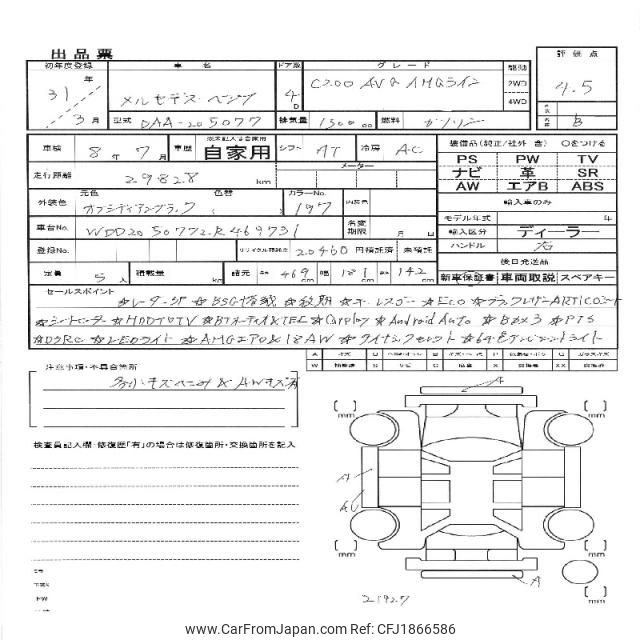 出品票
初年度登録 車名 ドア数 グレード 駆動 評価点
31年 3月 メルセデス・ベンツ 4D C200 AVG AMGライン 2WD 4WD 4.5
型式 DAA-205077 排気量 1500 cc 燃料 ガソリン B
車検 8年7月 車歴 自家用 シフト AT 冷房 AC
装備品(純正/社外 含) 〇をつける
PS PW TV
走行距離 29828 km メーター
ナビ 革 SR
AW エアB ABS
元色 色替 カラーNo.
外装色 オブシディアンブラック 197 内装色
輸入車のみ
モデル年式 年
車台No. WDD2050772R469731 名変期限 月 日
輸入区分 ディーラー
ハンドル 右
登録No. リサイクル預託金 20460 円 預託済 未預託
後日発送品
定員 5人 積載量 kg 諸元 長さ 469 cm 幅 181 cm 高さ 142 cm
新車保証書 車両取説 スペアキー
セールスポイント
☆レーダーSP ☆BSG搭載 ☆後期 ☆キーレスゴー ☆Eco ☆ブラックレザーARTICOシート
☆シートヒーター ☆HDDナビTV ☆BTオーディオ&TEL ☆Carplay ☆Android Auto ☆Bカメラ ☆PTS
☆ドラレコ ☆LEDライト ☆AMGエアロ&18AW ☆ダイナミックセレクト ☆64色アンビエントライト
注意事項・不具合箇所
多少キズヘコミ & AWキズ有
検査員記入欄・修復歴「有」の場合は修復箇所・交換箇所を記入
[ ] mm
[ ] mm
A
A
[ ] mm
[ ] mm
A
21927
[ ] mm
www.CarFromJapan.com Ref: CFJ1866586